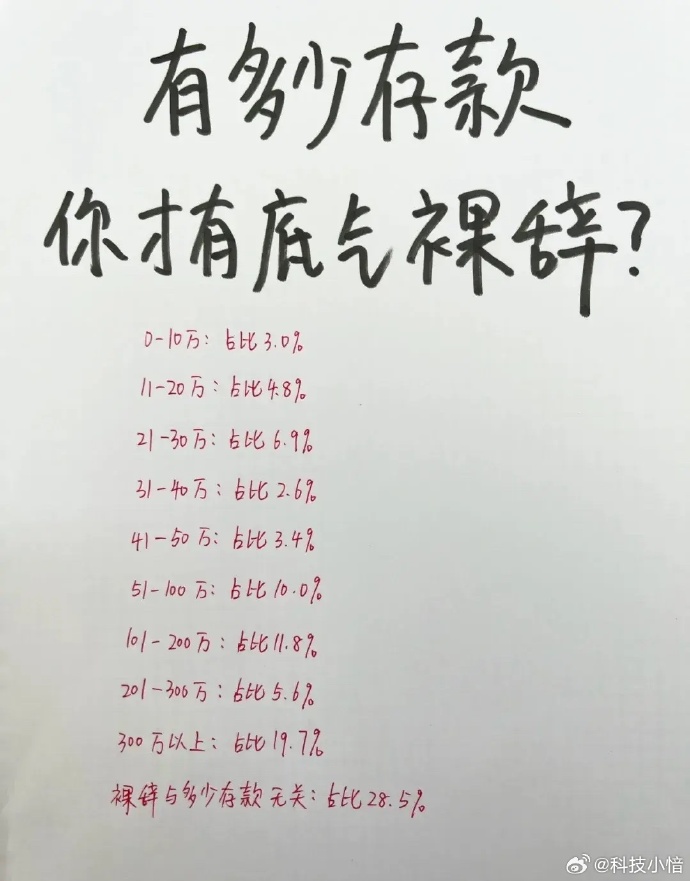 有多少存款
你才有底气裸辞？
0-10万：占比3.0%
11-20万：占比4.8%
21-30万：占比6.9%
31-40万：占比2.6%
41-50万：占比3.4%
51-100万：占比10.0%
101-200万：占比11.8%
201-300万：占比5.6%
300万以上：占比19.7%
裸辞与多少存款无关：占比28.5%
@科技小悟